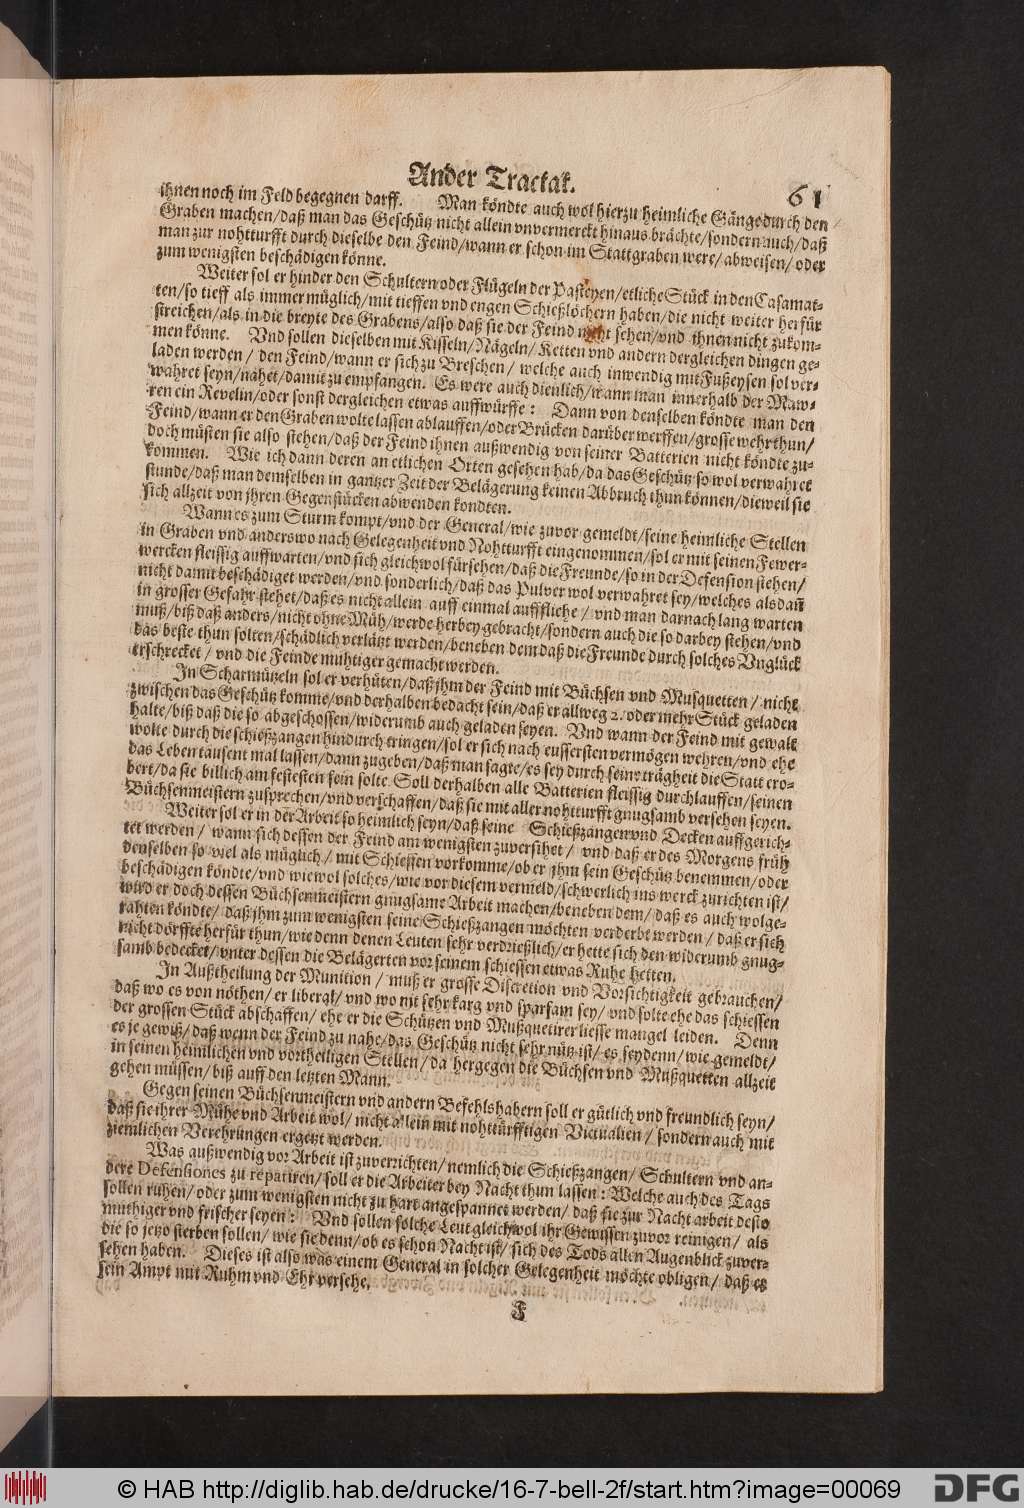 Ander Tractat.
61
ihnen noch im Feld begegnen darff. Man köndte auch wol hierzu heimliche Gänge durch den
Graben machen/daß man das Geschütz nicht allein vnvermerckt hinaus brächte/sondern auch/daß
man zur nohtturfft durch dieselbe den Feind/wann er schon im Stattgraben were/abweisen/oder
zum wenigsten beschädigen könne.
Weiter sol er hinder den Schultern oder Flügeln der Pasteyen/etliche Stück in den Casamat-
ten/so tieff als immer müglich/mit tieffen vnd engen Schießlöchern haben/die nicht weiter herfür
streichen/als in die breyte des Grabens/also daß sie der Feind nicht sehen/vnd ihnen nicht zukom-
men könne. Vnd sollen dieselben mit Kisseln/Nägeln/Ketten vnd andern dergleichen dingen ge-
laden werden/den Feind/wann er sich zu Breschen/welche auch inwendig mit Fußeysen sol ver-
wahret seyn/nahet/damit zu empfangen. Es were auch dienlich/wann man innerhalb der Maw-
ren ein Revelin/oder sonst dergleichen etwas auffwürffe: Dann von denselben köndte man den
Feind/wann er den Graben wolte lassen ablauffen/oder Brücken darüber werffen/grosse wehr thun/
doch müsten sie also stehen/daß der Feind ihnen außwendig von seiner Batterien nicht köndte zu-
kommen. Wie ich dann deren an etlichen Orten gesehen hab/da das Geschütz so wol verwahret
stunde/daß man demselben in gantzer Zeit der Belägerung keinen Abbruch thun können/dieweil sie
sich allzeit von jhren Gegenstücken abwenden kondten.
Wann es zum Sturm kompt/vnd der General/wie zuvor gemeldt/seine heimliche Stellen
in Graben vnd anderswo nach Gelegenheit vnd Nohtturfft eingenommen/sol er mit seinen Fewer-
wercken fleissig auffwarten/vnd sich gleichwol fürsehen/daß die Freunde/so in der Defension stehen/
nicht damit beschädiget werden/vnd sonderlich/daß das Pulver wol verwahret sey/welches alsdañ
in grosser Gefahr stehet/daß es nicht allein auff einmal aufffliehe/vnd man darnach lang warten
muß/biß daß anders/nicht ohne Müh/werde herbey gebracht/sondern auch die so darbey stehen/vnd
das beste thun solten/schädlich verlätzt werden/beneben dem daß die Freunde durch solches Vnglück
erschrecket/vnd die Feinde muhtiger gemacht werden.
In Scharmützeln sol er verhüten/daß jhm der Feind mit Büchsen vnd Musquetten/nicht
zwischen das Geschütz komme/vnd derhalben bedacht sein/daß er allweg 2. oder mehr Stück geladen
halte/biß daß die so abgeschossen/widerumb auch geladen seyen. Vnd wann der Feind mit gewalt
wolte durch die schießzangen hindurch tringen/sol er sich nach eussersten vermögen wehren/vnd ehe
das Leben tausent mal lassen/dann zugeben/daß man sagte/es sey durch seine trägheit die Statt ero-
bert/da sie billich am festesten sein solte. Soll derhalben alle Batterien fleissig durchlauffen/seinen
Büchsenmeistern zusprechen/vnd verschaffen/daß sie mit aller nohtturfft gnugsamb versehen seyen.
Weiter sol er in der Arbeit so heimlich seyn/daß seine Schießzangen vnd Decken auffgerich-
tet werden/wann sich dessen der Feind am wenigsten zuversihet/vnd daß er des Morgens früh
denselben so viel als müglich/mit Schiessen vorkomme/ob er jhm sein Geschütz benemmen/oder
beschädigen köndte/vnd wiewol solches/wie vor diesem vermeld/schwerlich ins werck zurichten ist/
wird er doch dessen Büchsenmeistern gnugsame Arbeit machen/beneben dem/daß es auch wolge-
rahten köndte/daß jhm zum wenigsten seine Schießzangen möchten verderbt werden/daß er sich
nicht dörffte herfür thun/wie denn denen Leuten sehr verdrießlich/er hette sich den widerumb gnug-
samb bedecket/vnter dessen die Belägerten vor seinem schiessen etwas Ruhe hetten.
In Außtheilung der Munition/muß er grosse Discretion vnd Vorsichtigkeit gebrauchen/
daß wo es von nöthen/er liberal/vnd wo nit sehr karg vnd sparsam sey/vnd solte ehe das schiessen
der grossen Stück abschaffen/ehe er die Schützen vnd Mußquetirer liesse mangel leiden. Denn
es je gewiß/daß wenn der Feind zu nahe/das Geschütz nicht sehr nütz ist/es sey denn/wie gemeldt/
in seinen heimlichen vnd vortheiligen Stellen/da hergegen die Büchsen vnd Mußquetten allzeit
gehen müssen/biß auff den letzten Mann.
Gegen seinen Büchsenmeistern vnd andern Befehlshabern soll er gütlich vnd freundlich seyn/
daß sie ihrer Mühe vnd Arbeit wol/nicht allein mit nohttürfftigen Victualien/sondern auch mit
ziemlichen Verehrungen ergetzt werden.
Was außwendig vor Arbeit ist zuverrichten/nemlich die Schießzangen/Schultern vnd an-
dere Defensiones zu repariren/soll er die Arbeiter bey Nacht thun lassen: Welche auch des Tags
sollen ruhen/oder zum wenigsten nicht zu hart angespannet werden/daß sie zur Nacht arbeit desto
muthiger vnd frischer seyen: Vnd sollen solche Leut gleichwol ihr Gewissen zuvor reinigen/als
die so jetzo sterben sollen/wie sie denn/ob es schon Nacht ist/sich des Tods allen Augenblick zuver-
sehen haben. Dieses ist also was einem General in solcher Gelegenheit möchte obligen/daß es
sein Ampt mit Ruhm vnd Ehr versehe.
F
© HAB http://diglib.hab.de/drucke/16-7-bell-2f/start.htm?image=00069
DFG